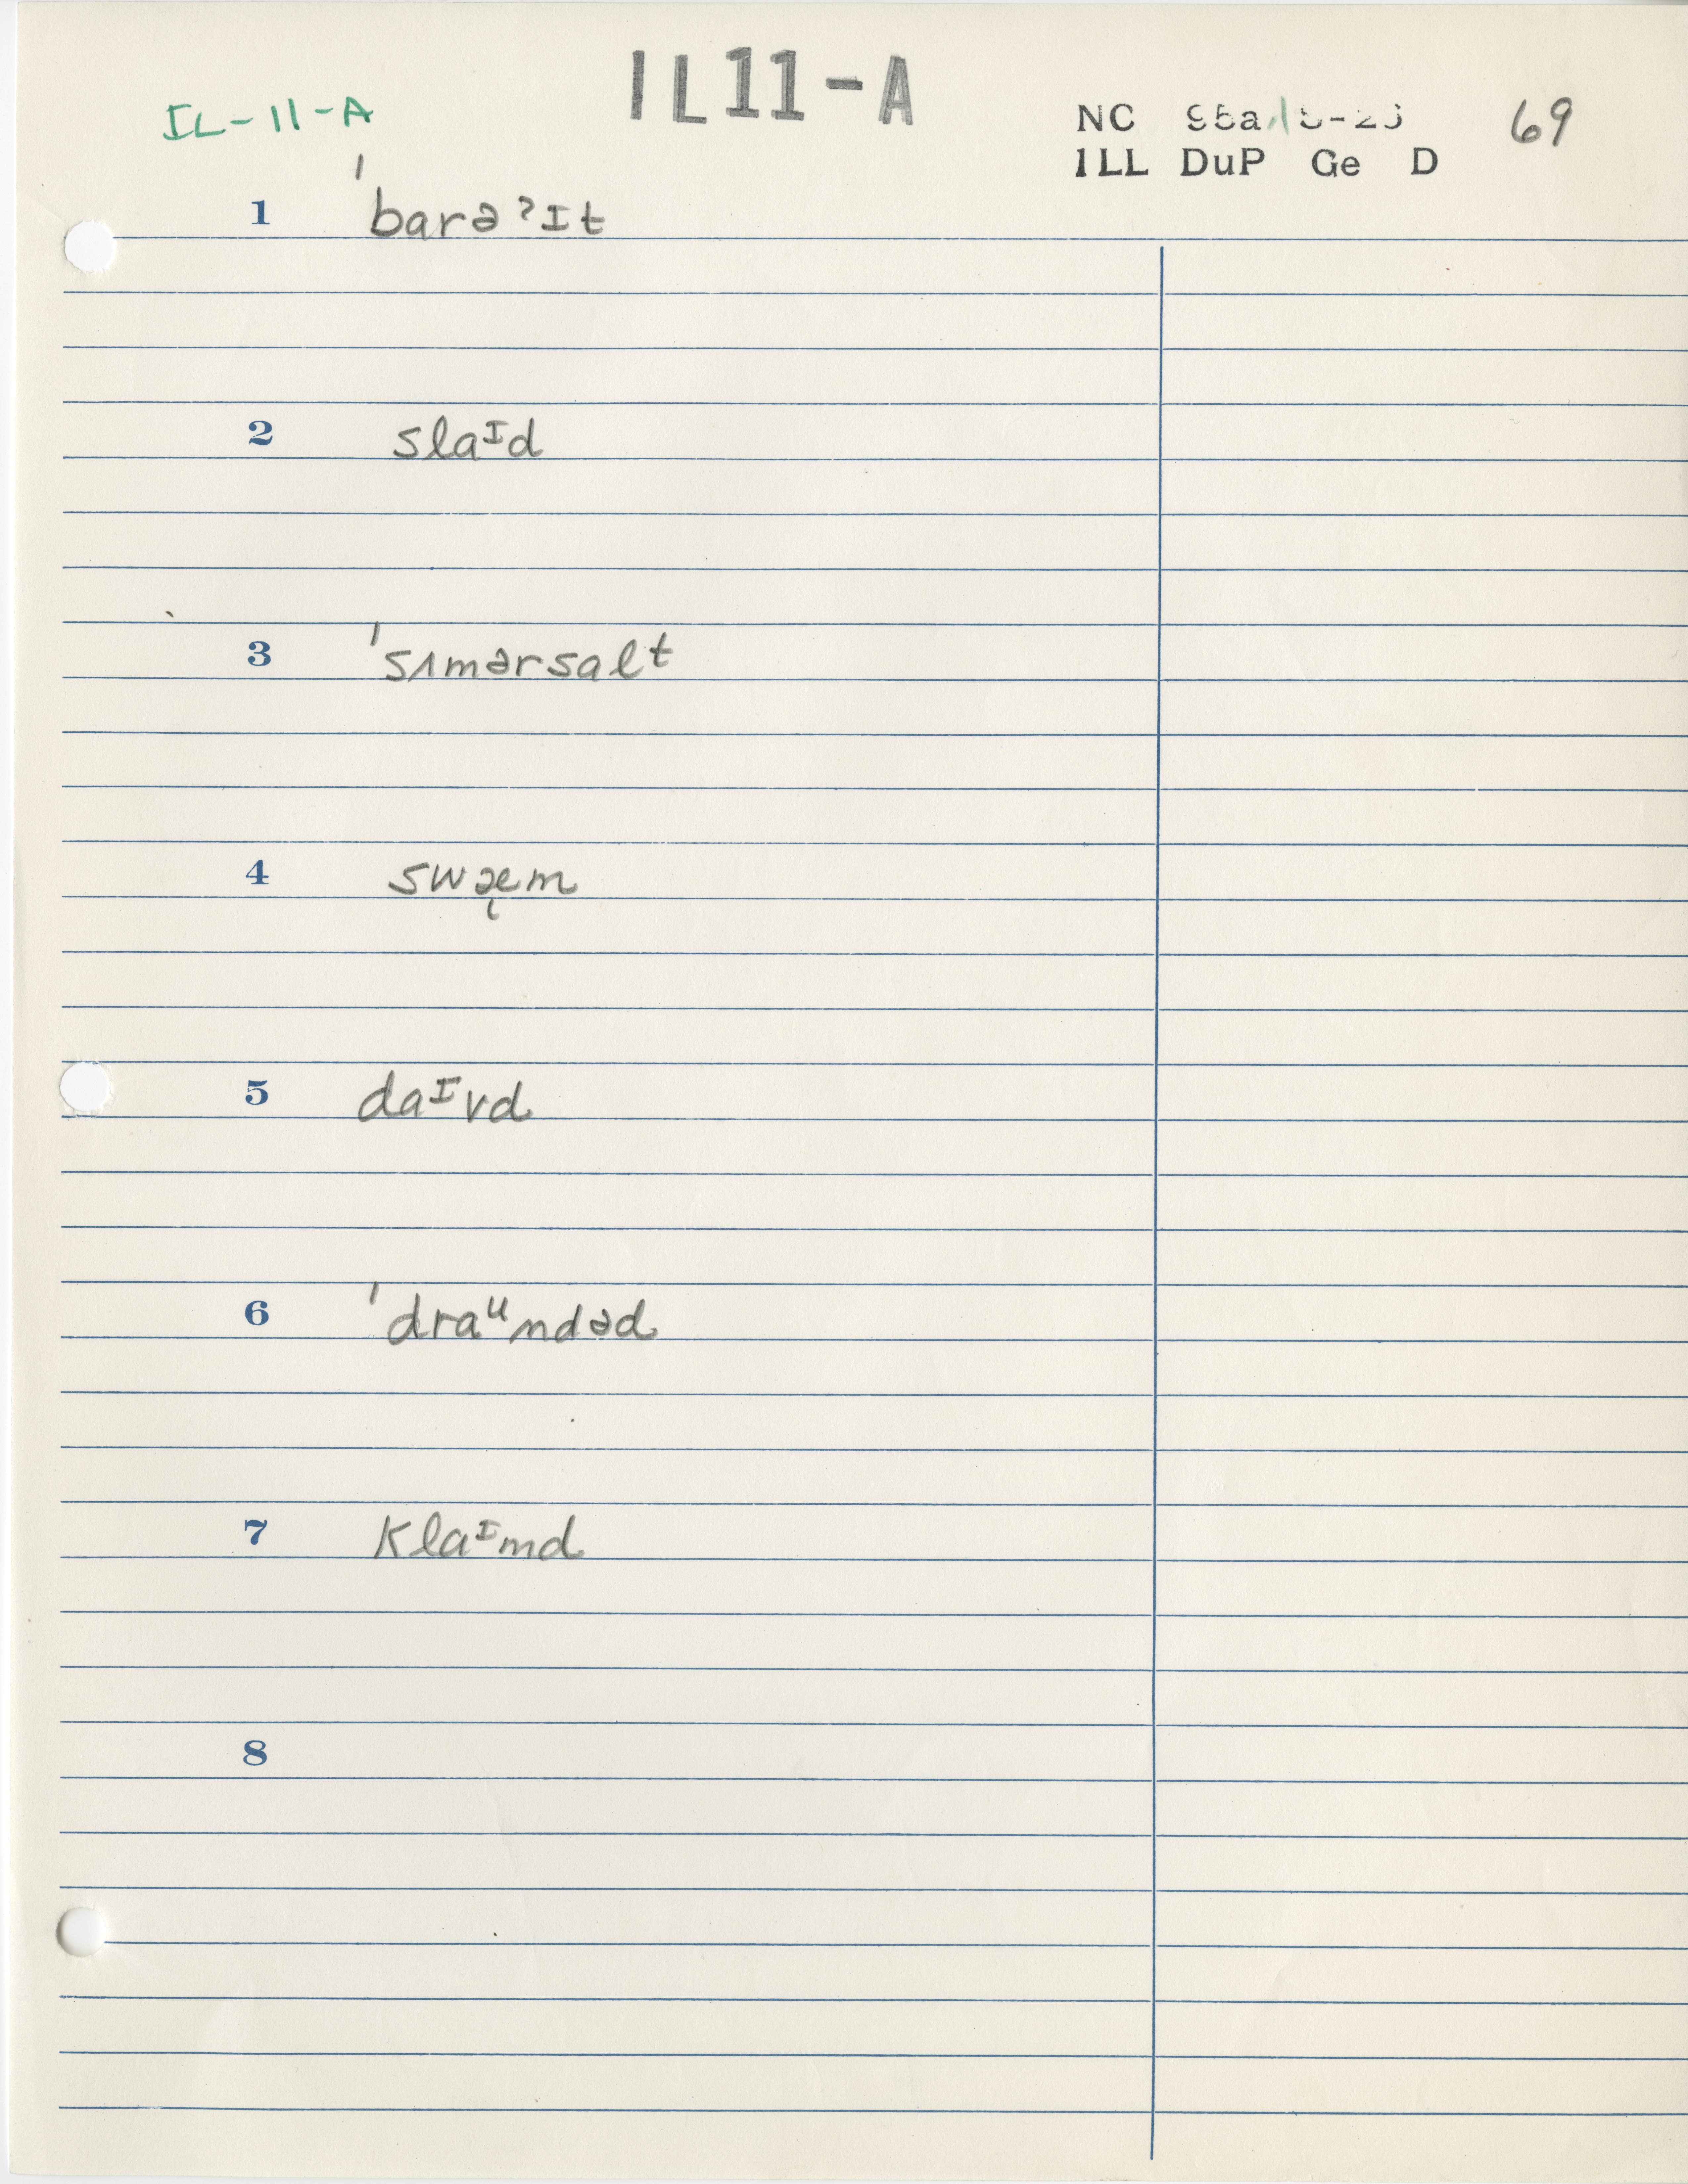 IL11-A
IL-11-A
NC 95a 69
ILL DuP Ge D
1 ˈbarəˀɪt
2 slaᴵd
3 ˈsʌmərsalt
4 swæ̨m
5 daᴵvd
6 ˈdraᵘndəd
7 klaᴵmd
8